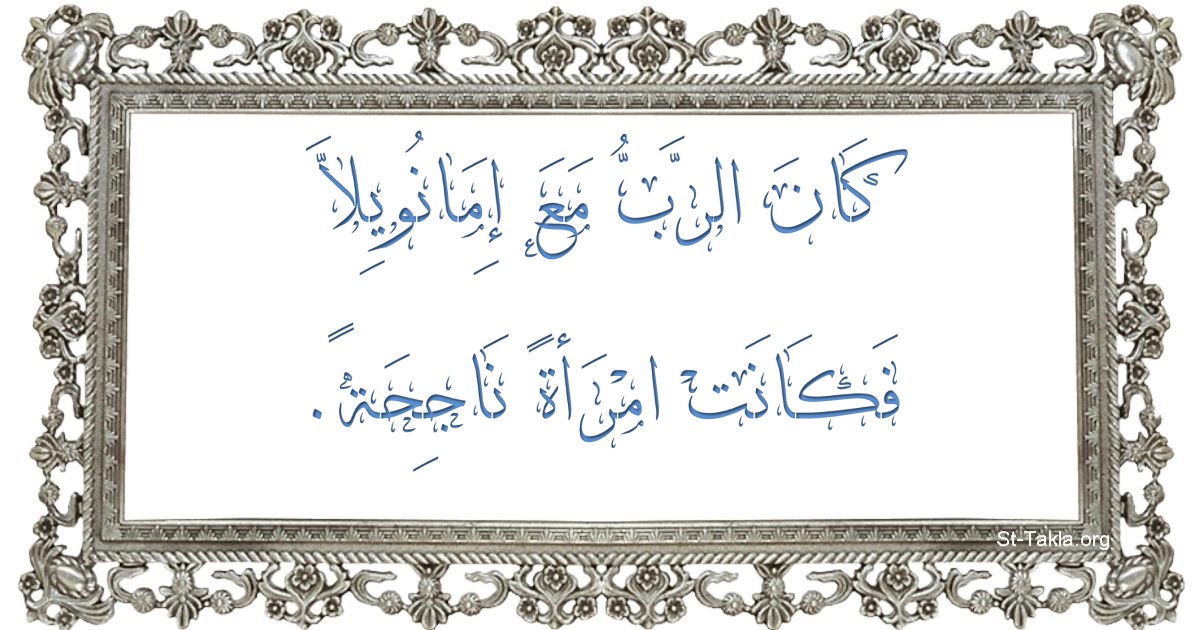 كَانَ الرَّبُّ مَعَ إِمَانُويِلاَّ
فَكَانَتْ امْرَأَةً نَاجِحَةً.
St-Takla.org